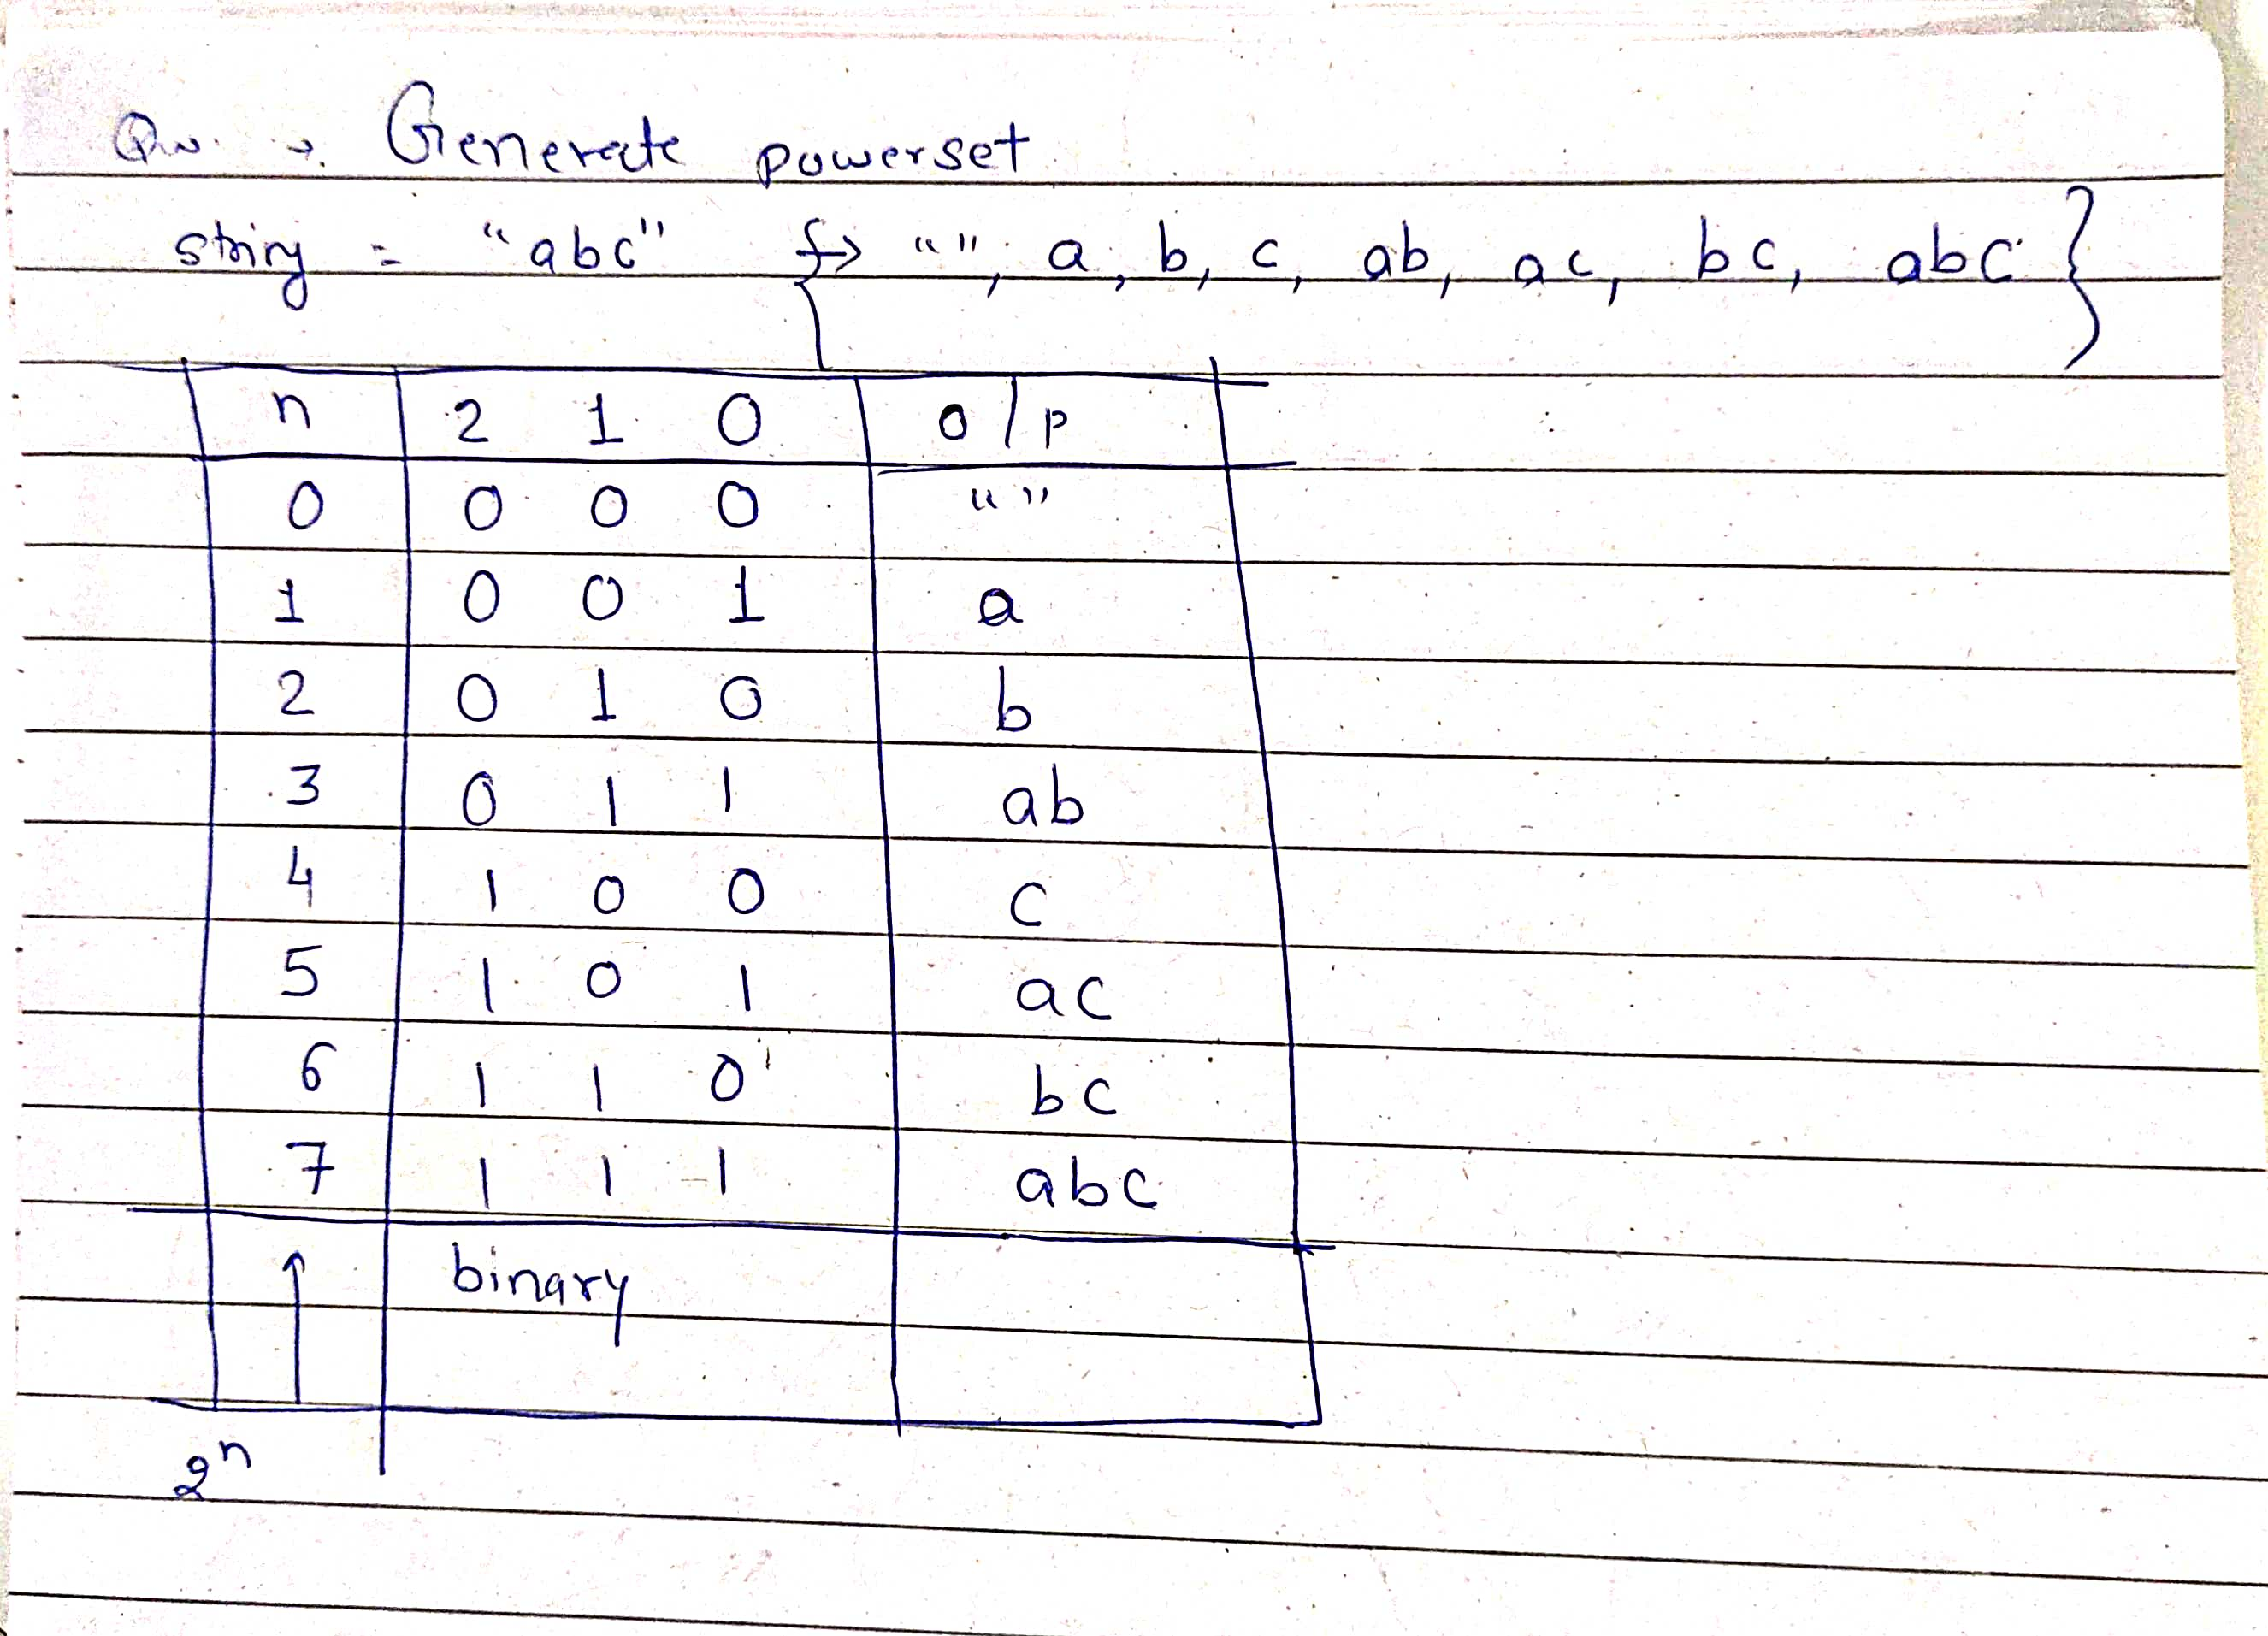 Qn. → Generate powerset
string = "abc" { → "", a, b, c, ab, ac, bc, abc }
n 2 1 0 o/p
0 0 0 0 " "
1 0 0 1 a
2 0 1 0 b
3 0 1 1 ab
4 1 0 0 c
5 1 0 1 ac
6 1 1 0 bc
7 1 1 1 abc
↑ binary
2ⁿ